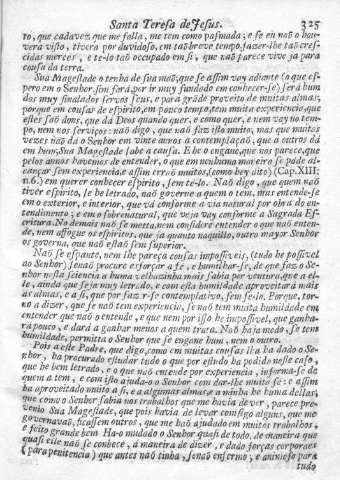 Santa Teresa de Jesus. 325
to, que cada vez que me falla, me tem como pasmada; e se eu naõ o hou-
vera visto, tivera por duvidoso, em taõ breve tempo fazer-lhe taõ cres-
cidas mercés, e te-lo taõ occupado em si, que naõ parece vive ja para
cousa da terra.
Sua Magestade o tenha de sua maõ, que se assim vay adiante (o que es-
pero em o Senhor sim fará, por ir muy fundado em conhecer-se) será hum
dos muy sinalados servos seus, e para grãde proveito de muitas almas,
porque em cousas de espirito, em pouco tempo, tem muita experiencia, que
estes saõ dons, que dá Deos quando quer, e como quer, e nem vay no tem-
po, nem nos serviços: naõ digo, que naõ faz isto muito, mas que muitas
vezes naõ dá o Senhor em vinte annos a contemplaçaõ, que a outros dá
em hum, Sua Magestade sabe a causa. E he o engano, que nos parece, que
pelos annos havemos de entender, o que em nenhuma maneira se póde al-
cançar sem experiencia, e assim erraõ muitos, (como hey dito) (Cap. XIII;
n.6.) em querer conhecer espirito, sem te-lo. Naõ digo, que quem naõ
tiver espirito, se he letrado, naõ governe a quem o tem, mas entende-se
em o exterior, e interior, que vá conforme a via natural por obra do en-
tendimento; e em o sobrenatural, que veja vay conforme a Sagrada Es-
critura. No demais naõ se mata, nem considere entender o que naõ enten-
de, nem affogue os espiritos, que ja quanto naquillo, outro mayor Senhor
os governa, que naõ estaõ sem superior.
Naõ se espante, nem lhe pareça cousas impossiveis, (tudo he possivel
ao Senhor) senaõ procure esforçar a fé, e humilhar-se, de que faz o Se-
nhor nesta sciencia a huma velhazinha mais sabia por ventura, que a el-
le, ainda que seja muy letrado, e com esta humildade aproveitará mais
as almas, e a si, que por fazer-se contemplativo, sem se-lo. Porque, tor-
no a dizer, que se naõ tem experiencia, se naõ tem muita humildade em
entender que naõ o entende, e que nem por isso he impossivel, que ganha-
rá pouco, e dará a ganhar menos a quem trata. Naõ haja medo, se tem
humildade, permitta o Senhor que se engane hum, nem o outro.
Pois a este Padre, que digo, como em muitas cousas lha ha dado o Se-
nhor, ha procurado estudar tudo o que por estudo ha podido neste caso,
que he bem letrado, e o que naõ entende por experiencia, informa-se de
quem a tem, e com isto ajuda-o o Senhor com dar-lhe muito fé: e assim
ha aproveitado muito a si, e a algumas almas, e a minha he huma dellas,
que como o Senhor sabia nos trabalhos que me havia de ver, parece pre-
venio Sua Magestade, que pois havia de levar comsigo alguns, que me
governavaõ, ficassem outros, que me haõ ajudado em muitos trabalhos,
e feito grande bem. Ha-o mudado o Senhor quasi de todo, de maneira que
quasi elle naõ se conhece, á maneira de dizer, e dado forças corporaes
(para penitencia) que antes naõ tinha, senaõ enfermo, e animoso para
tudo